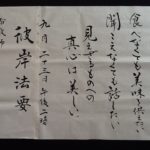 食べなくても美味を供えたい
聞こえなくても話したい
見えざるものへの
真心は美しい
九月二十三日 午後一時
彼岸法要